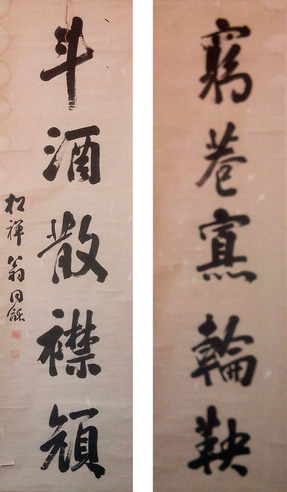 窮巷寡輪鞅
斗酒散襟顏
松禪翁同龢